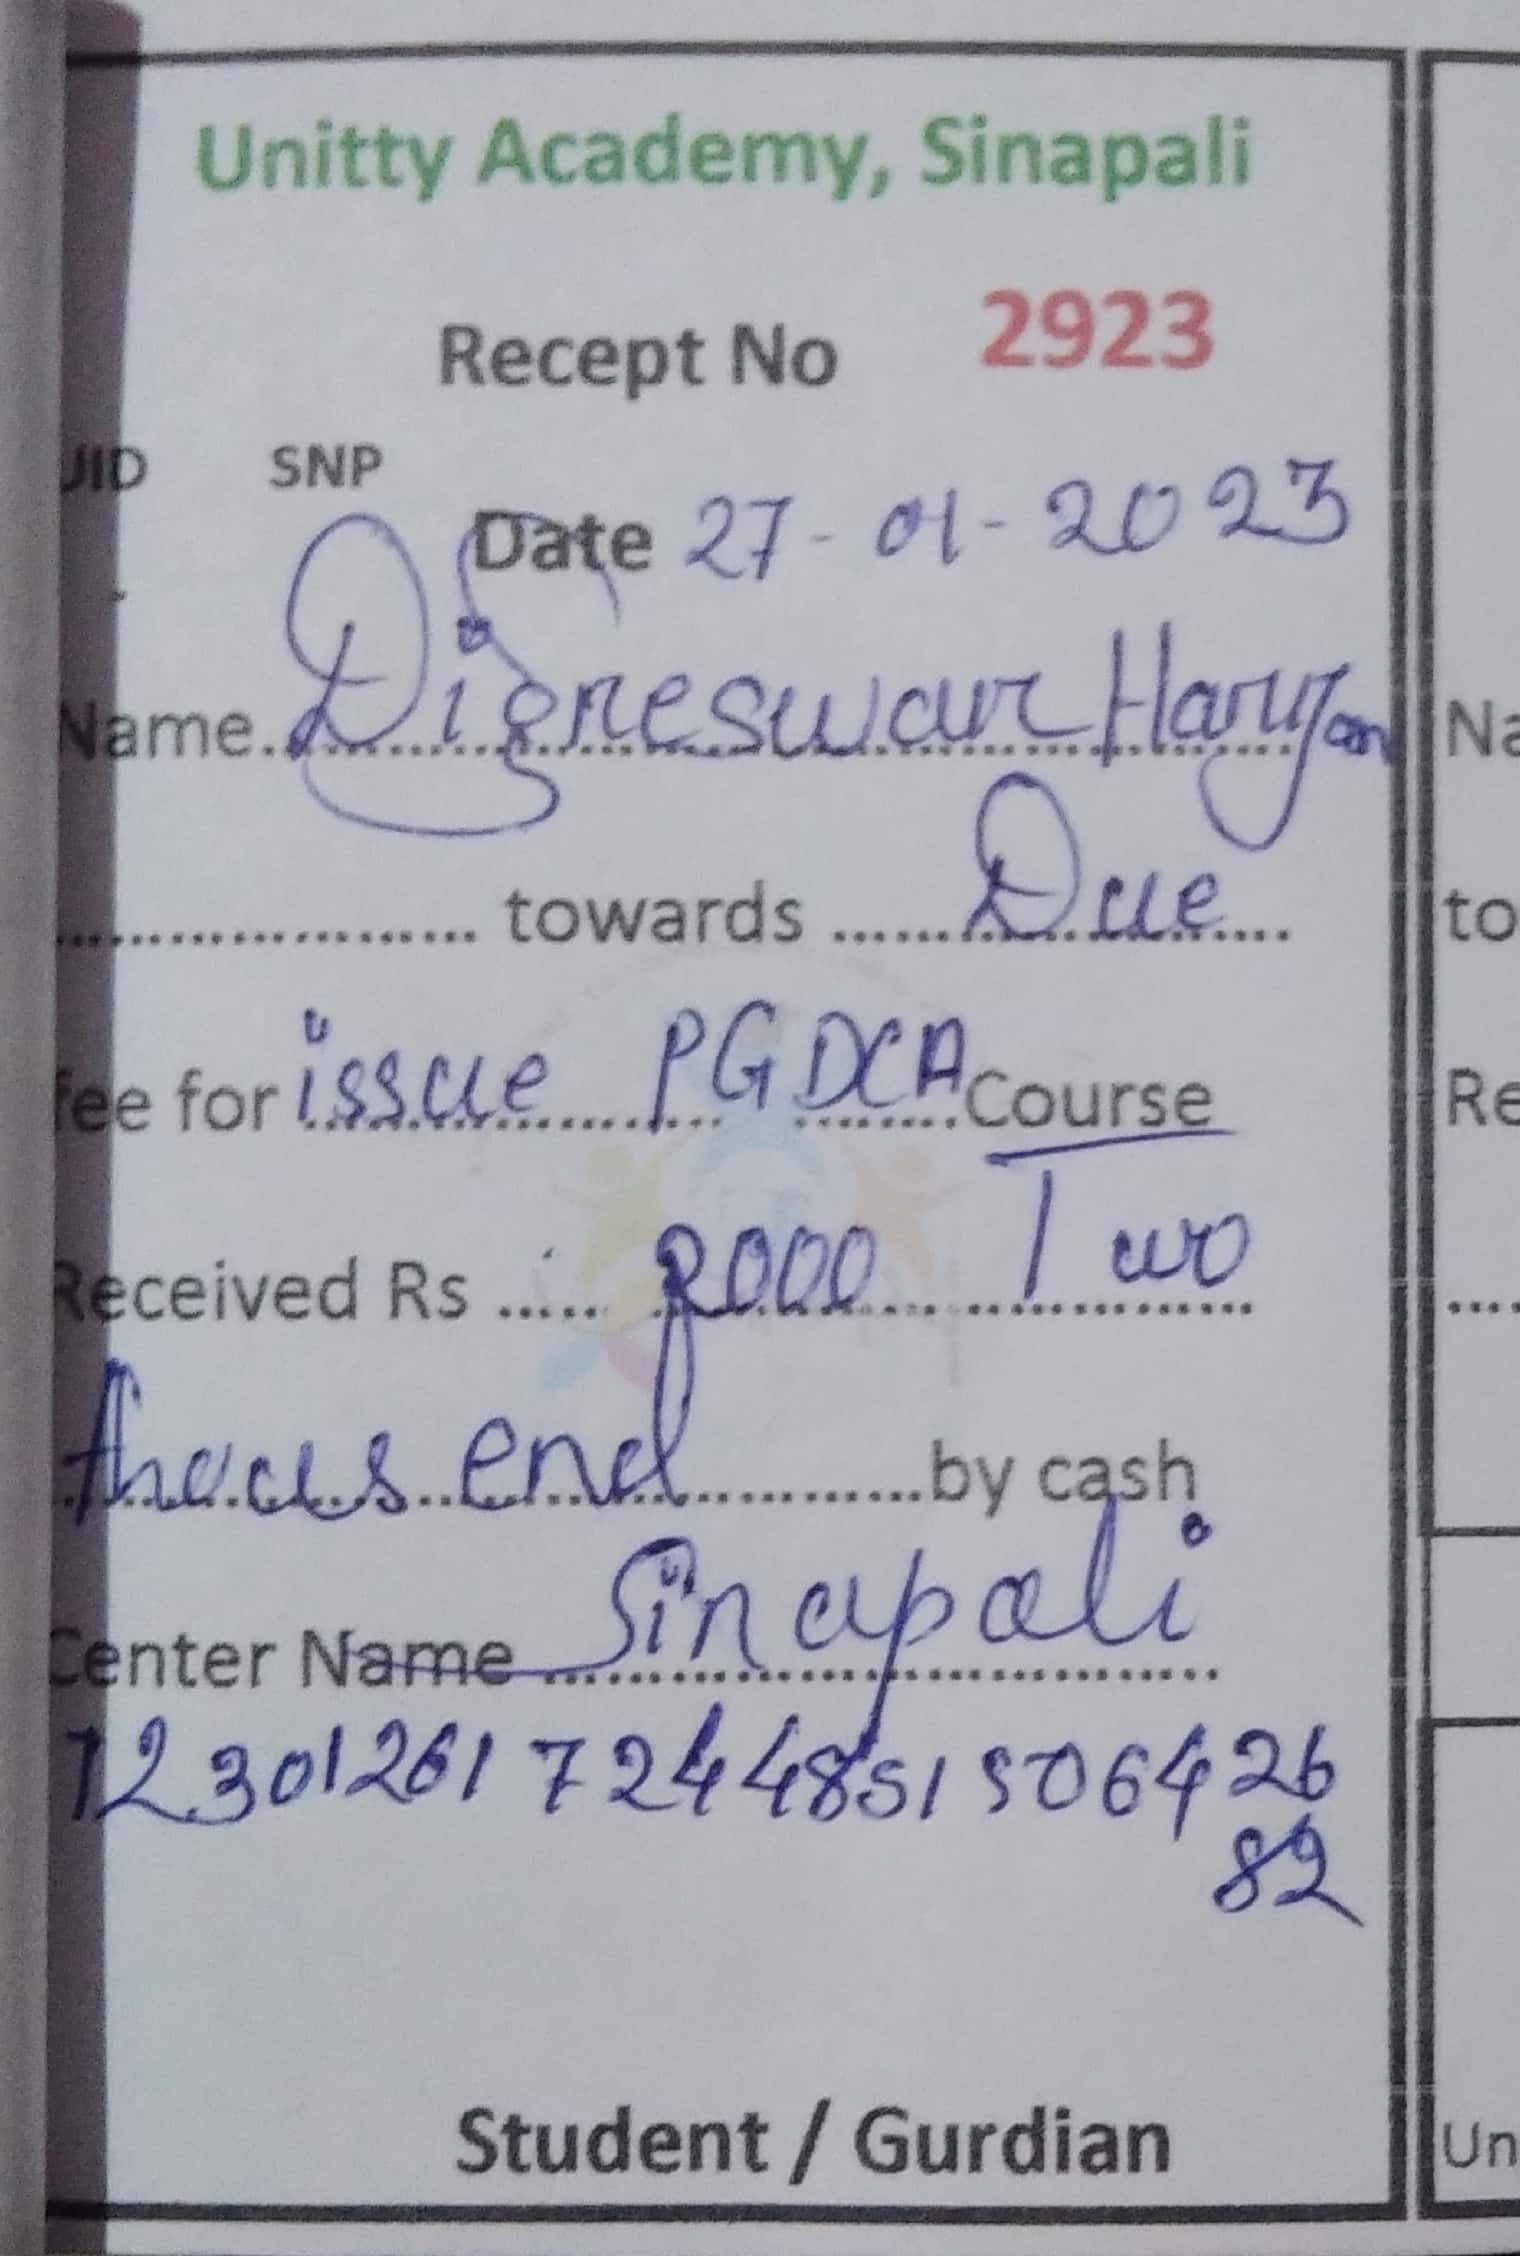 Unitty Academy, Sinapali
Recept No 2923
UID SNP
Date 27-01-2023
Name Digneswar Harijan
towards Due
fee for issue PGDCA Course
Received Rs 2000 Two
thousend by cash
Center Name Sinapali
T2301261724485150642682
Student / Gurdian
Na
to
Re
Un